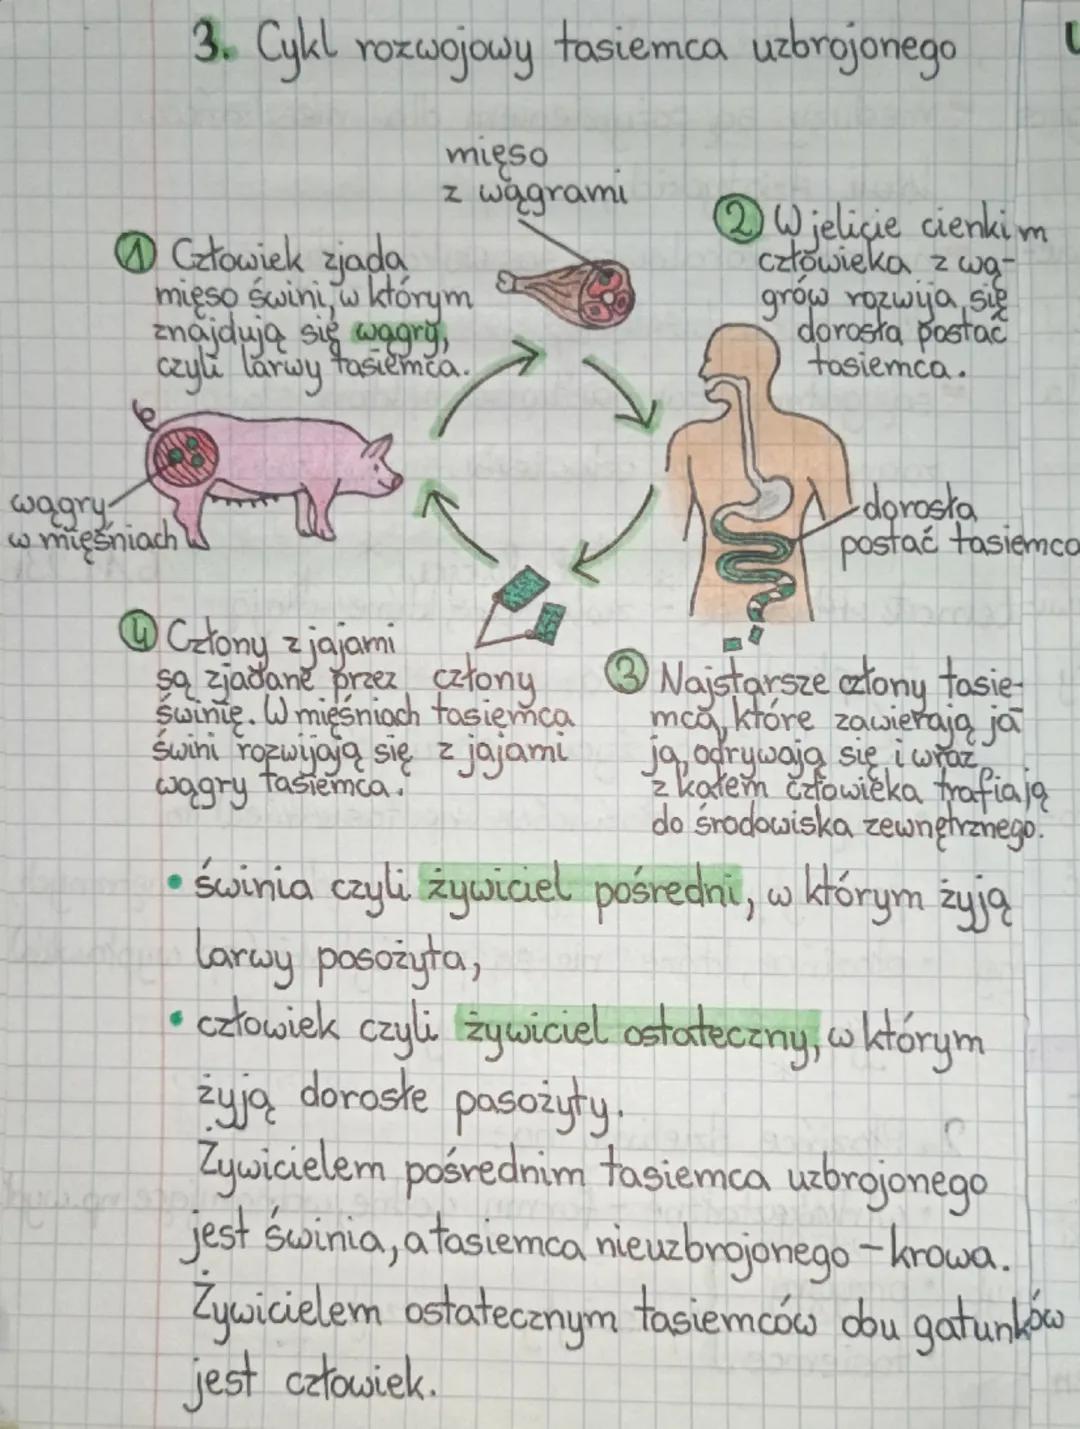 3. Cykl rozwojowy tasiemca uzbrojonego
mięso
z wągrami
1 Człowiek zjada
mięso świni, w którym
znajdują się wągry,
czyli larwy tasiemca.
2 W jelicie cienkim
człowieka z wą-
grów rozwija się
dorosła postać
tasiemca.
wągry
w mięśniach
dorosła
postać tasiemca
4 Człony z jajami
są zjadane przez
świnię. W mięśniach
świni rozwijają się
wągry tasiemca.
człony
tasiemca
z jajami
3 Najstarsze człony tasie-
mca, które zawierają ja
ja, odrywają się i wraz
z kałem człowieka trafiają
do środowiska zewnętrznego.
• świnia czyli żywiciel pośredni, w którym żyją
larwy posożyta,
• człowiek czyli żywiciel ostateczny, w którym
żyją dorosłe pasożyty.
Żywicielem pośrednim tasiemca uzbrojonego
jest świnia, a tasiemca nieuzbrojonego - krowa.
Żywicielem ostatecznym tasiemców obu gatunków
jest człowiek.